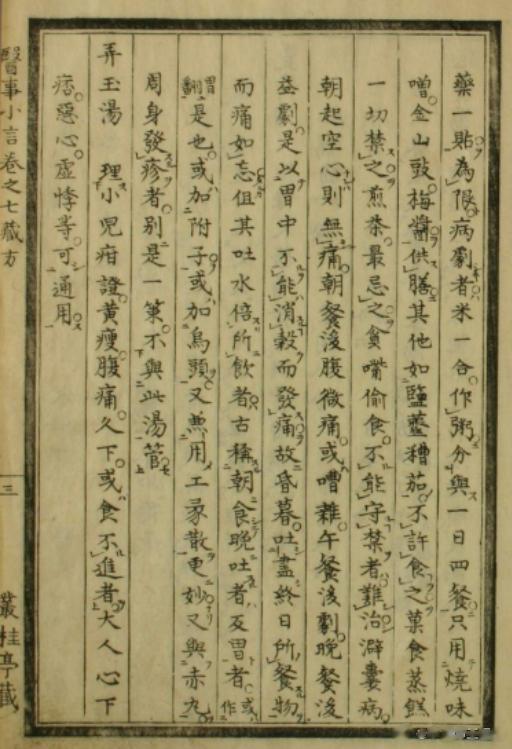 藥一貼為限病劇者米一合作粥分與一日四餐只用燒味
噌金山豉梅醬供膳其他如鹽藏糟茄不許食之菓食蒸餻
一切禁之煎茶最忌之貪嘴偷食不能守禁者難治澼囊病
朝起空心則無痛朝餐後腹微痛或嘈雜午餐後劇晚餐後
益劇是以胃中不能消穀而發痛故昏暮吐盡終日所餐物
而痛如忘但其吐水倍所飲者古稱朝食晚吐者反胃者或作
胃翻是也或加附子或加烏頭又兼用工豕散更妙又與赤丸
周身發疹者別是一策不與此湯管
弄玉湯 理小兒疳證黃瘦腹痛久下或食不進者大人心下
痞惡心虛悸等可通用
醫事小言卷之七藏方
三
叢桂亭藏